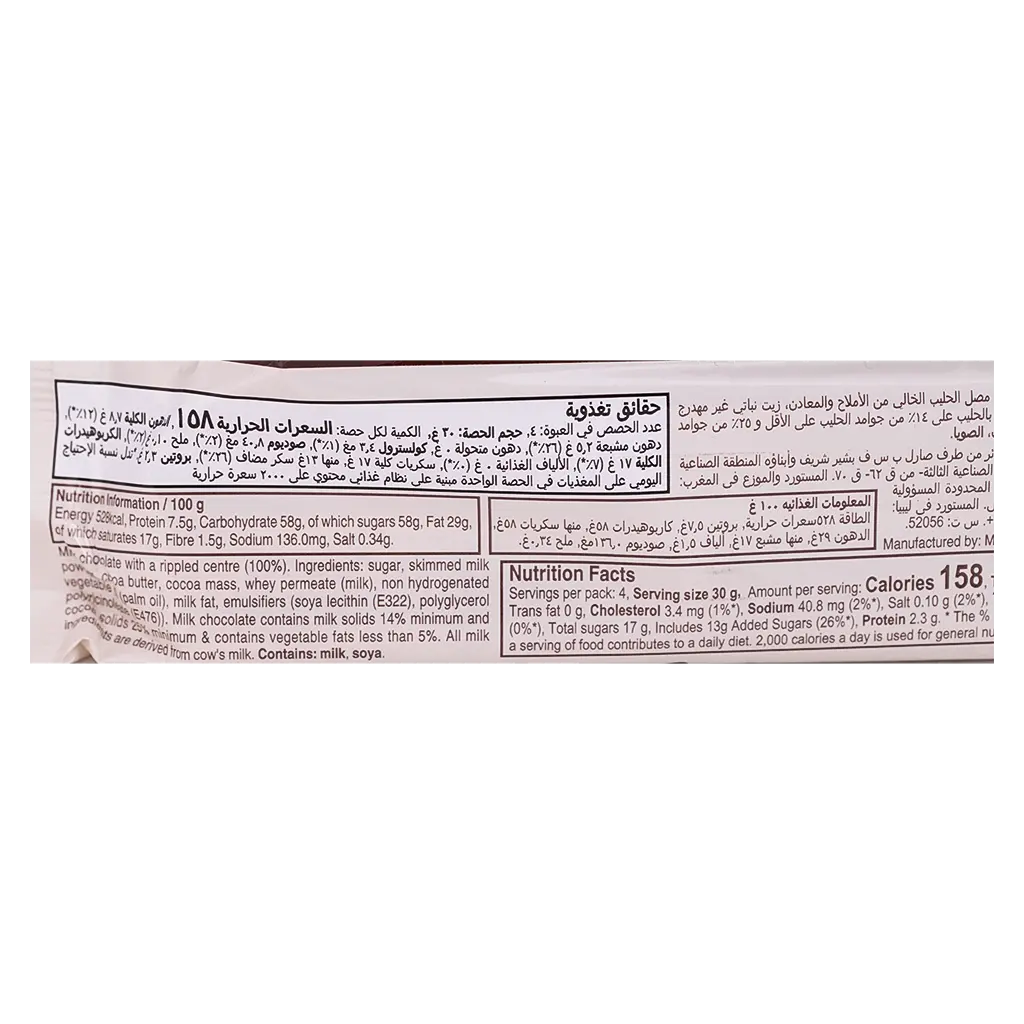 حقائق تغذوية
عدد الحصص في العبوة: ٤, حجم الحصة: ٣٠ غ, الكمية لكل حصة: السعرات الحرارية ١٥٨, الدهون الكلية ٨,٧ غ (١٢٪*),
دهون مشبعة ٥,٢ غ (٢٦٪*), دهون متحولة ٠ غ, كولسترول ٣,٤ مغ (١٪*), صوديوم ٤٠,٨ مغ (٢٪*), ملح ٠,١٠غ(٢٪*), الكربوهيدرات
الكلية ١٧ غ (٧٪*), الألياف الغذائية ٠ غ (٠٪*), سكريات كلية ١٧ غ, منها ١٣غ سكر مضاف (٢٦٪*), بروتين ٢,٣ غ نسبة الإحتياج
اليومي على المغذيات في الحصة الواحدة مبنية على نظام غذائي محتوي على ٢٠٠٠ سعرة حرارية
مصل الحليب الخالي من الأملاح والمعادن، زيت نباتي غير مهدرج
بالحليب على ١٤٪ من جوامد الحليب على الأقل و ٢٥٪ من جوامد
، الصويا.
من طرف صارل ب س ف بشير شريف وأبناؤه المنطقة الصناعية
الصناعية الثالثة- من ق ٦٢- ق ٧٠. المستورد والموزع في المغرب:
المحدودة المسؤولية
المستورد في ليبيا:
س ت: 52056.
Manufactured by: M
Nutrition Information / 100 g
Energy 528kcal, Protein 7.5g, Carbohydrate 58g, of which sugars 58g, Fat 29g,
of which saturates 17g, Fibre 1.5g, Sodium 136.0mg, Salt 0.34g.
المعلومات الغذائيه ١٠٠ غ
الطاقة ٥٢٨سعرات حرارية, بروتين ٧,٥غ, كاربوهيدرات ٥٨غ, منها سكريات ٥٨غ,
الدهون ٢٩غ, منها مشبع ١٧غ, ألياف ١,٥غ, صوديوم ١٣٦,٠مغ, ملح ٠,٣٤غ.
Milk chocolate with a rippled centre (100%). Ingredients: sugar, skimmed milk
powder, cocoa butter, cocoa mass, whey permeate (milk), non hydrogenated
vegetable (palm oil), milk fat, emulsifiers (soya lecithin (E322), polyglycerol
polyricinoleate (E476)). Milk chocolate contains milk solids 14% minimum and
cocoa solids 25% minimum & contains vegetable fats less than 5%. All milk
ingredients are derived from cow's milk. Contains: milk, soya.
Nutrition Facts
Servings per pack: 4, Serving size 30 g, Amount per serving: Calories 158,
Trans fat 0 g, Cholesterol 3.4 mg (1%*), Sodium 40.8 mg (2%*), Salt 0.10 g (2%*),
(0%*), Total sugars 17 g, Includes 13g Added Sugars (26%*), Protein 2.3 g. * The %
a serving of food contributes to a daily diet. 2,000 calories a day is used for general nu